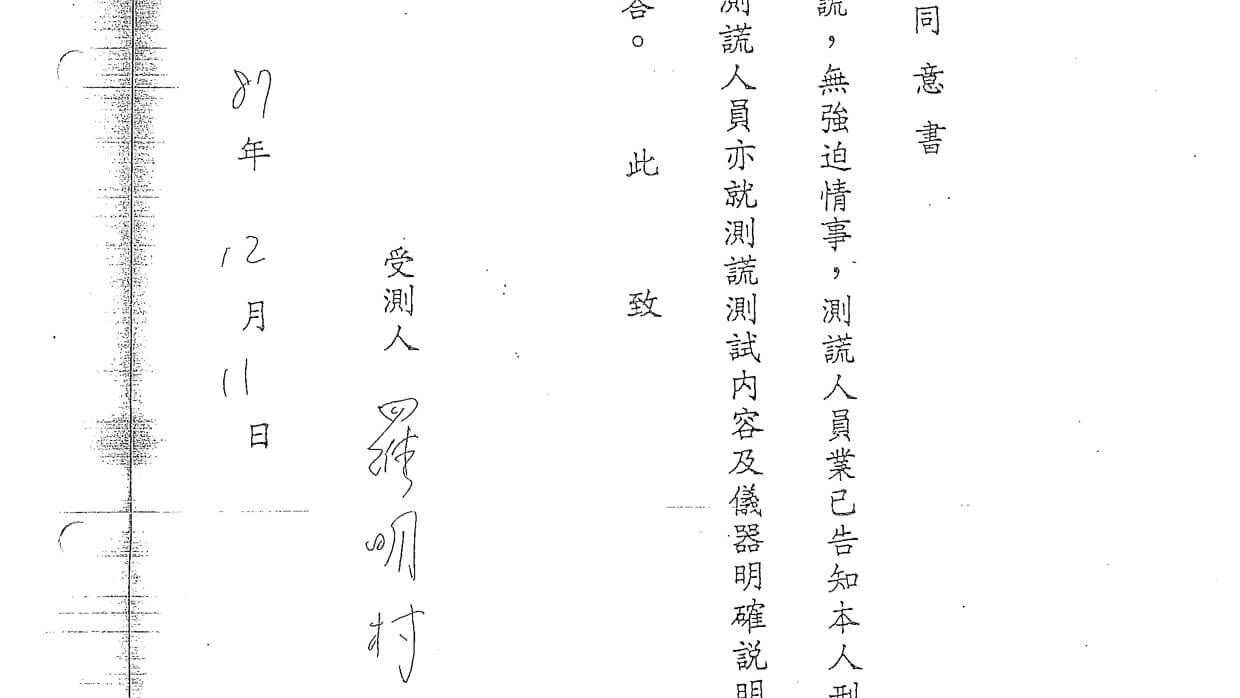 同意書
謊，無強迫情事，測謊人員業已告知本人刑
測謊人員亦就測謊測試內容及儀器明確説明
答。　此　致
受測人 羅明村
87年12月11日